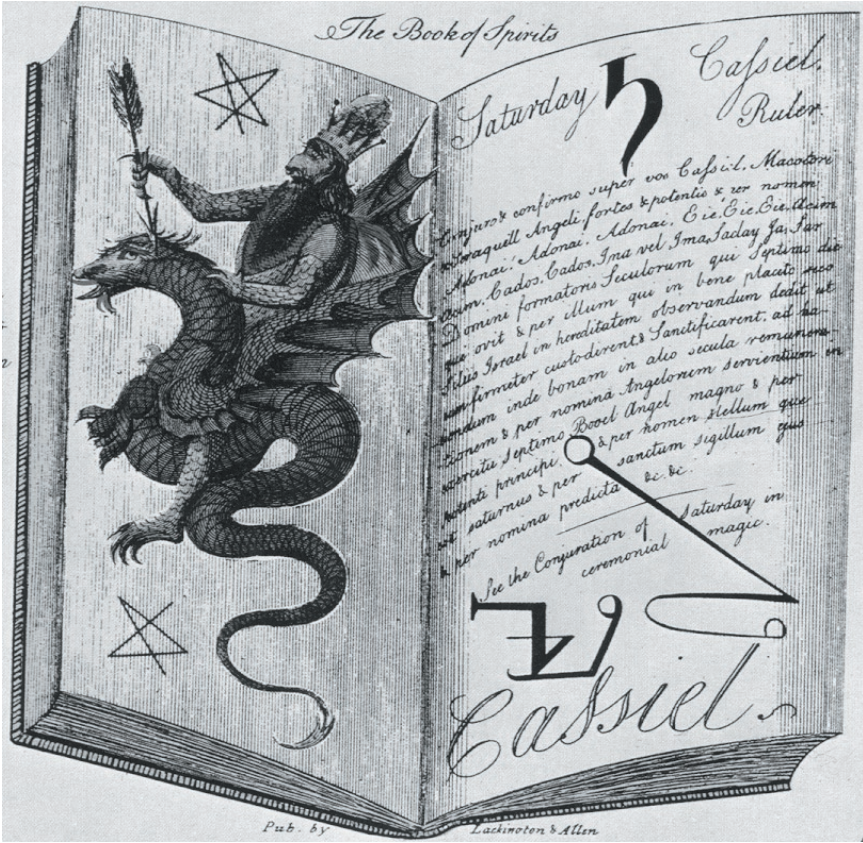 The Book of Spirits
Saturday ♄ Cassiel.
Ruler.
Conjuro & confirmo super vos Cassiel, Macoton
& Seraquiell Angeli fortes & potentis & per nomen
Adonai: Adonai. Adonai. Eie, Eie, Eie, Acim
Acim, Cados, Cados, Ina vel Ima, Saday Ja, Sar
Domini formatoris Seculorum qui Septimo die
qui ovit & per illum qui in bene placito suo
filius Israel in hereditatem observandum dedit ut
eum firmeter custodirent & Sanctificarent, ad ha-
bendum inde bonam in alio secula remunera-
tionem & per nomina Angelorum servientium in
exercitu Septimo Booel Angel magno & per
potenti principi & per nomen stellum que
est saturnus & per sanctum sigillum ejus
& per nomina predicta &c. &c.
See the Conjuration of Saturday in
ceremonial magic.
Cassiel.
Pub. by Lackington & Allen